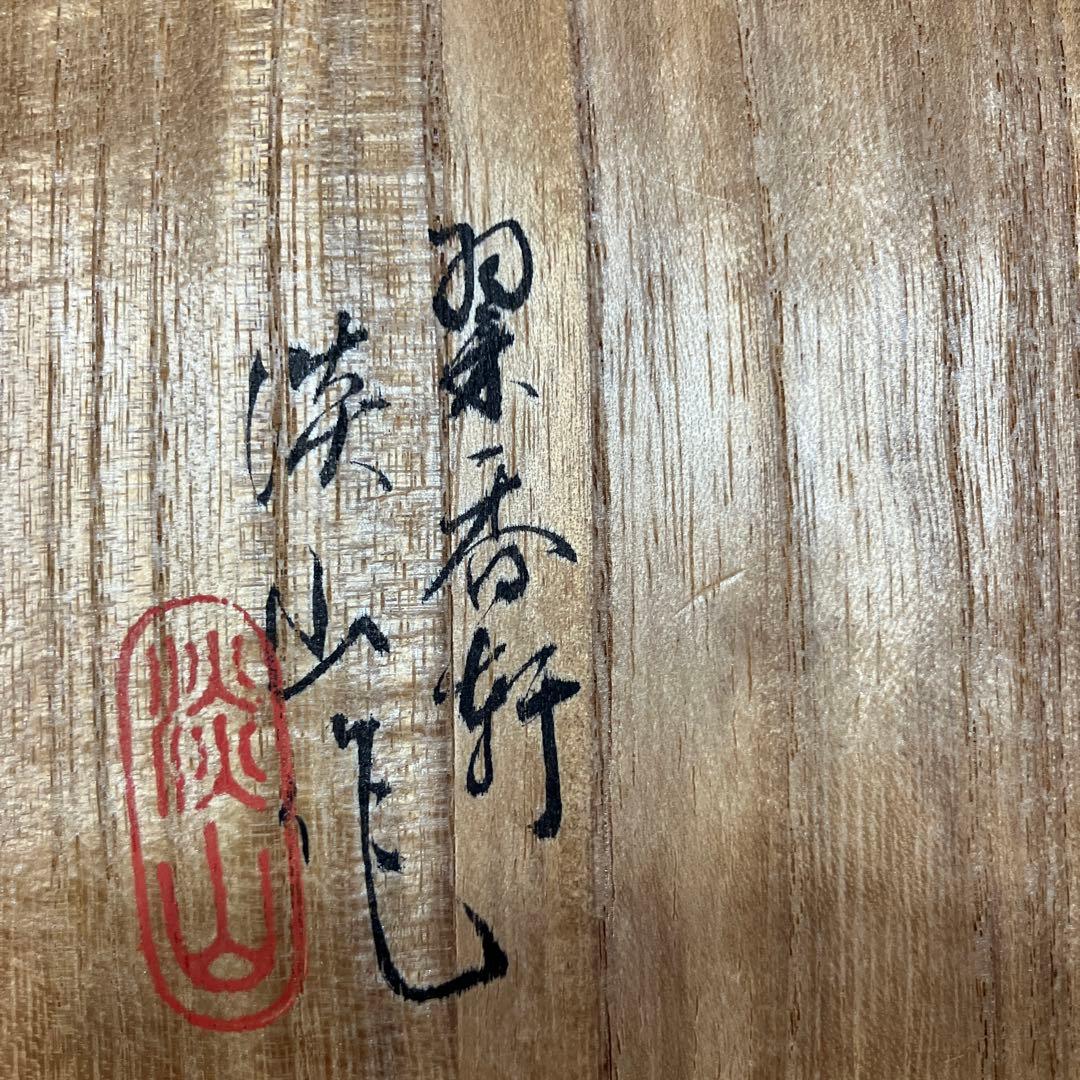 翠香軒
淡山作
淡山